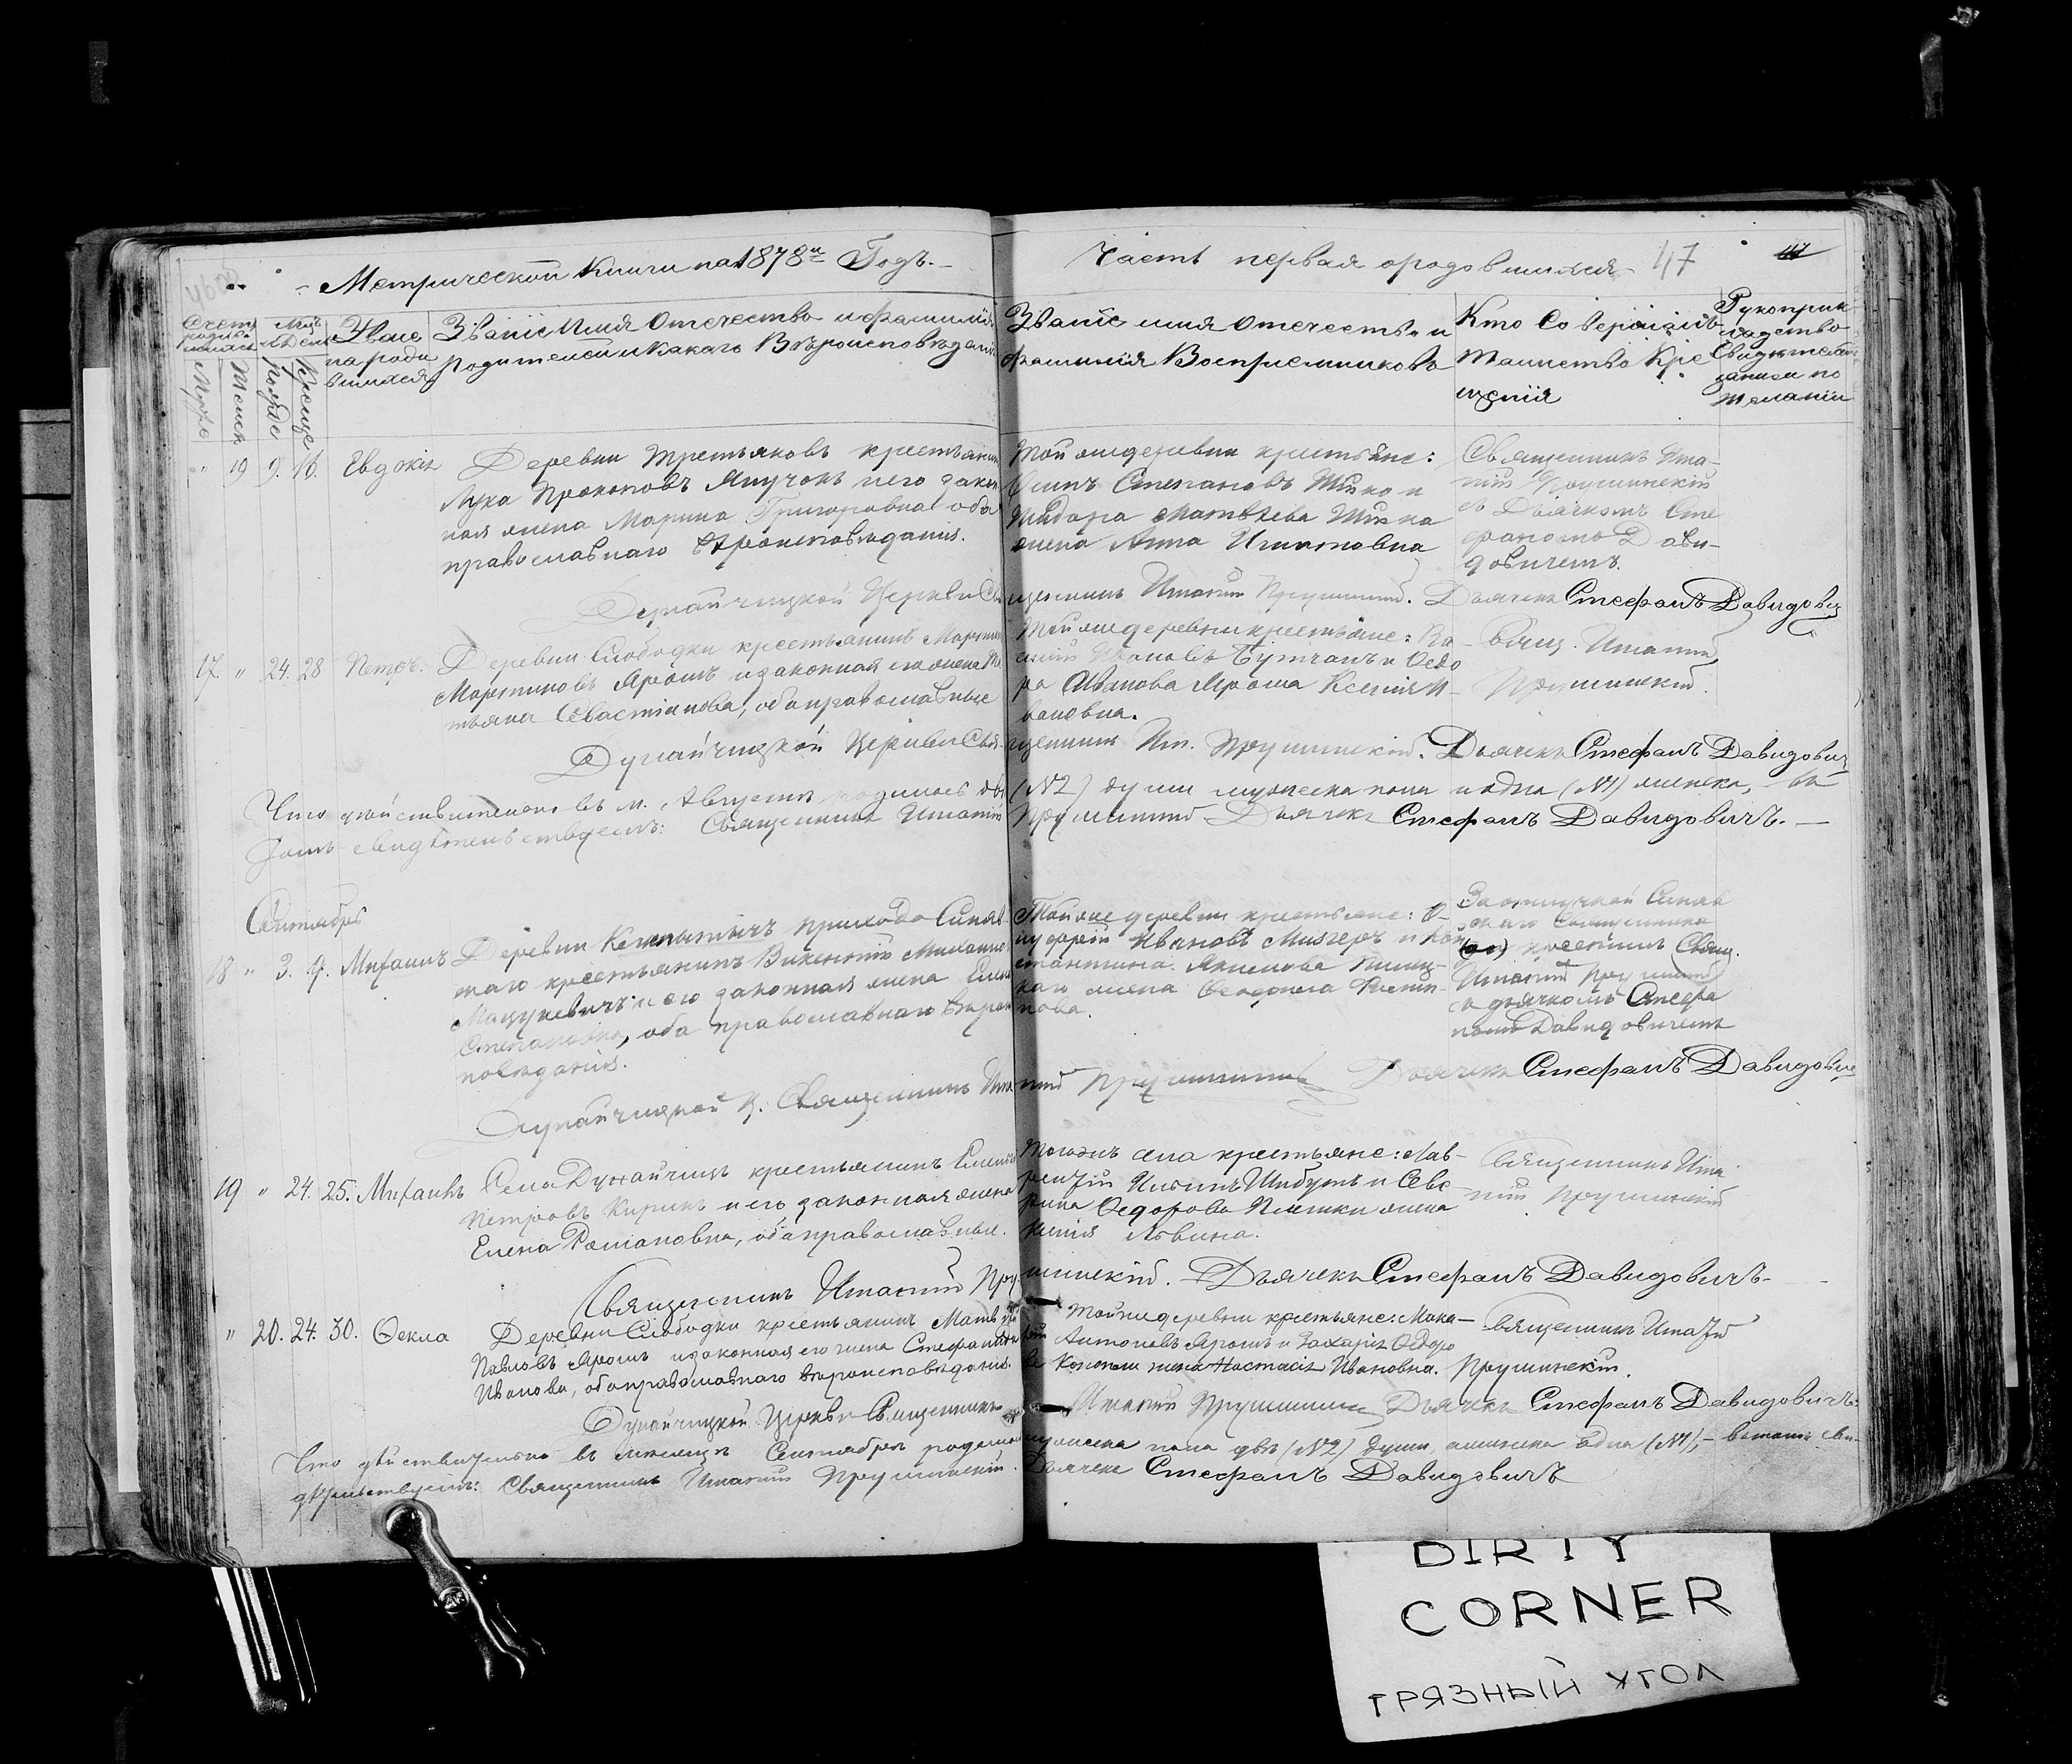 Метрической Книги на 1878й Годъ.
Часть первая о родовшихся 47
Счетъ родившихся
Мцъ и День
Званіе Имя Отечество и фамилія
Родителей и Какаго Вѣроисповѣданія
Званіе имя Отечество и
фамилія Воспріемниковъ
Кто Совершилъ
Таинство Кре
щенія
Рукоприк
ладство
Свидѣтелей
записи по
желанію
" 19 9. 16. Евдокія
Деревни Третьяковъ крестьянинъ
Лука Прокоповъ Янучокъ и его закон
ная жена Марина Григоровна оба
православнаго вѣроисповѣданія.
Той же деревни крестьяне:
Осипъ Степановъ и
Матвѣева
жена Анна Игнатовна
Священникъ Игна-
тій Прушинскій
съ Дьячкомъ Сте
фаномъ Дави-
довичемъ.
Дунайчицкой Церкви Свя
щенникъ Игнатій Прушинскій. Дьячекъ Стефанъ Давидовичъ
17. " 24. 28 Петръ.
Деревни Слободки крестьянинъ Мартинъ
Мартиновъ Ярошъ и законная его жена
Севастіанова, оба православные
Той же деревни крестьяне:
Ивановъ и Ѳедо
ра Иванова Яроша Ксенія И-
вановна.
Свящ. Игнатій
Прушинскій.
Дунайчицкой Церкви Свя-
щенникъ Иг. Прушинскій. Дьячекъ Стефанъ Давидовичъ
Что дѣйствительно въ м. Августѣ родилось двѣ
(№2) души мужеска пола и одна (№1) женска, въ
томъ свидѣтельствуемъ: Священникъ Игнатій
Прушинскій Дьячекъ Стефанъ Давидовичъ.
Сентябрь
18 " 3. 4. Михаилъ
Деревни прихода Синяв
скаго крестьянинъ Викентій
Мацукевичъ и его законная жена
Степановна, оба православнаго вѣроис
повѣданія.
Той же деревни крестьяне: О-
нуфрій Ивановъ и Кон
стантина Якимова
жена
За отлучкой Синяв
скаго Священника
крестилъ Свящ.
Игнатій Прушинскій
съ дьячкомъ Стефа
номъ Давидовичемъ
Дунайчицкой ц. Священникъ Игна
тій Прушинскій Дьячекъ Стефанъ Давидовичъ
19 " 24. 25. Михаилъ
Села Дунайчицъ крестьянинъ
Петровъ Кирикъ и его законная жена
Елена Романовна, оба православные.
Того жъ села крестьяне: Лав-
рентій и Севе
рина Ѳедорова жена
Священникъ Игна-
тій Прушинскій
Священникъ Игнатій Пру
шинскій. Дьячекъ Стефанъ Давидовичъ
" 20. 24. 30. Ѳекла
Деревни Слободки крестьянинъ Матвѣй
Павловъ Ярошъ и законная его жена Стефанида
Иванова, оба православнаго вѣроисповѣданія.
Той же деревни крестьяне: Мака-
рій Антоновъ Ярошъ и Захарія Ѳедоро
ва жена Настасія Ивановна.
Священникъ Игнатій
Прушинскій.
Дунайчицкой Церкви Священникъ
Игнатій Прушинскій Дьячекъ Стефанъ Давидовичъ.
Что дѣйствительно въ мѣсяцѣ Сентябрѣ родилось
мужеска пола двѣ (№2) души, женска одна (№1), въ томъ сви-
дѣтельствуемъ: Священникъ Игнатій Прушинскій.
Дьячекъ Стефанъ Давидовичъ
DIRTY
CORNER
ГРЯЗНЫЙ УГОЛ